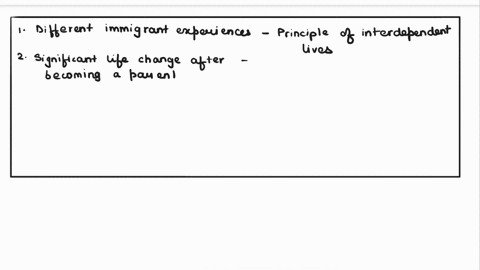 1. Different immigrant experiences - Principle of interdependent
lives
2. Significant life change after -
becoming a parent